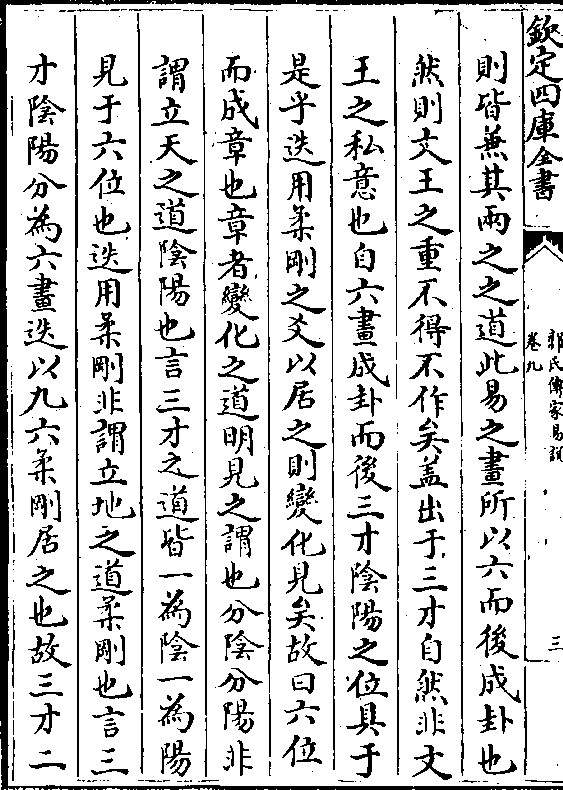 欽定四庫全書
郭氏傳家易説
卷九
三
則皆兼其兩之之道此易之畫所以六而後成卦也
然則文王之重不得不作矣盖出于三才自然非文
王之私意也自六畫成卦而後三才陰陽之位具于
是乎迭用柔剛之爻以居之則變化見矣故曰六位
而成章也章者變化之道明見之謂也分陰分陽非
謂立天之道陰陽也言三才之道皆一為陰一為陽
見于六位也迭用柔剛非謂立地之道柔剛也言三
才陰陽分為六畫迭以九六柔剛居之也故三才二